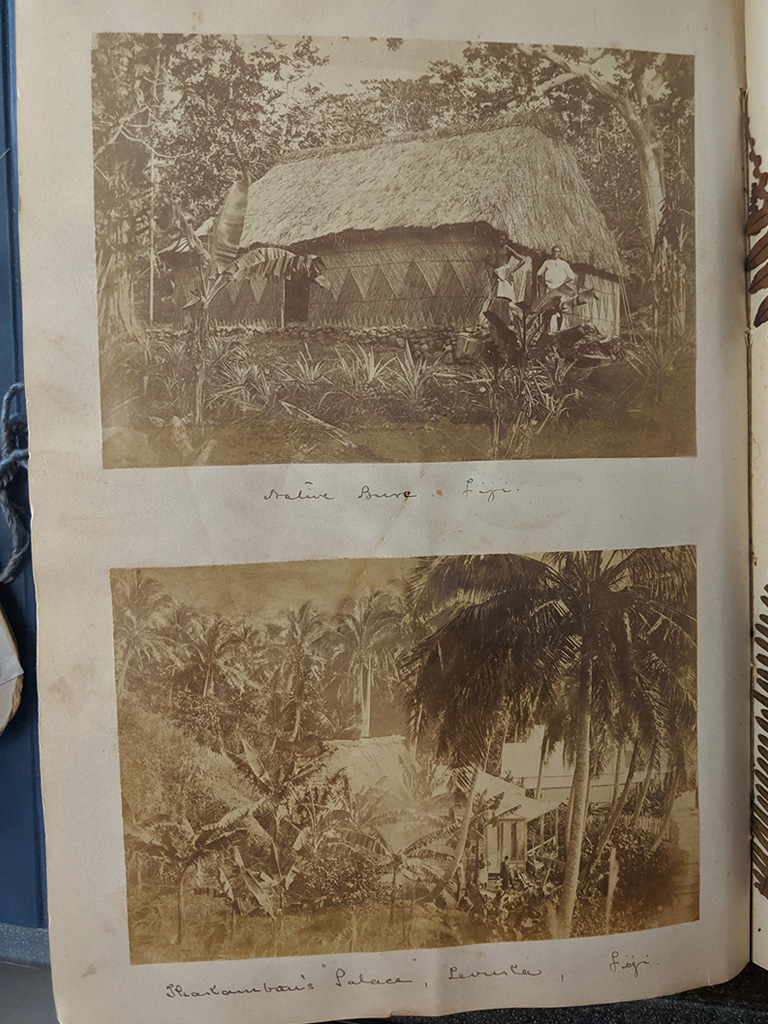 Native Bure. Fiji.
Thakambau's "Palace", Levuka, Fiji.